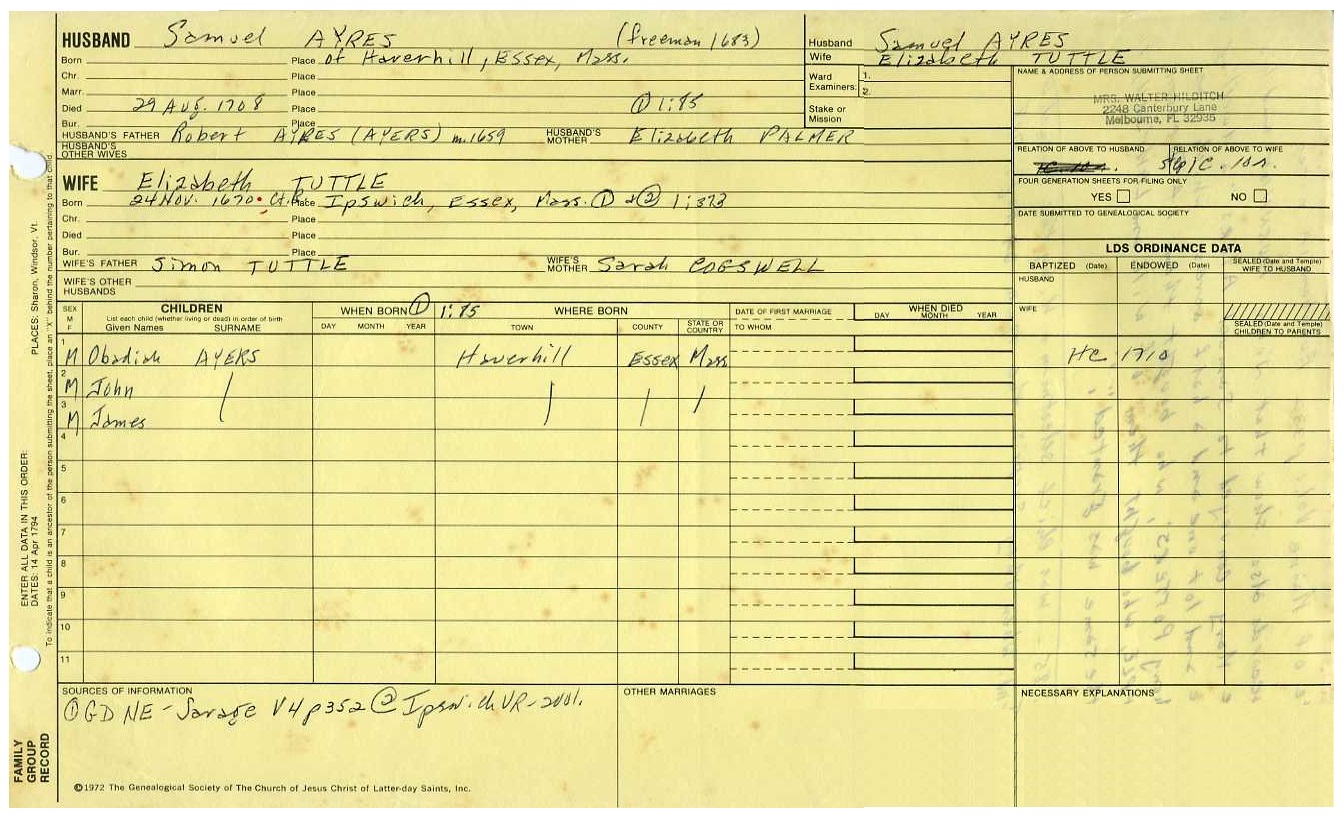 HUSBAND Samuel AYRES (freeman 1683)
Born Place of Haverhill, Essex, Mass.
Chr. Place
Marr. Place
Died 29 Aug. 1708 Place ① 1:85
Bur. Place
HUSBAND'S FATHER Robert AYRES (AYERS) m.1659 HUSBAND'S MOTHER Elizabeth PALMER
HUSBAND'S OTHER WIVES
WIFE Elizabeth TUTTLE
Born 24 Nov. 1670 Place Ipswich, Essex, Mass. ① ② 1:373
Chr. Place
Died Place
Bur. Place
WIFE'S FATHER Simon TUTTLE WIFE'S MOTHER Sarah COGSWELL
WIFE'S OTHER HUSBANDS
Husband Samuel AYRES
Wife Elizabeth TUTTLE
Ward Examiners: 1.
2.
Stake or Mission
NAME & ADDRESS OF PERSON SUBMITTING SHEET
MRS. WALTER HILDITCH
2248 Canterbury Lane
Melbourne, FL 32935
RELATION OF ABOVE TO HUSBAND RELATION OF ABOVE TO WIFE
FOUR GENERATION SHEETS FOR FILING ONLY
YES NO
DATE SUBMITTED TO GENEALOGICAL SOCIETY
LDS ORDINANCE DATA
BAPTIZED (Date) ENDOWED (Date) SEALED (Date and Temple) WIFE TO HUSBAND
HUSBAND
WIFE
SEALED (Date and Temple) CHILDREN TO PARENTS
SEX M F CHILDREN WHEN BORN ① 1:85 WHERE BORN DATE OF FIRST MARRIAGE WHEN DIED
List each child (whether living or dead) in order of birth
Given Names SURNAME DAY MONTH YEAR TOWN COUNTY STATE OR COUNTRY TO WHOM DAY MONTH YEAR
1 M Obadiah AYERS Haverhill Essex Mass HC 1710
2 M John
3 M James
4
5
6
7
8
9
10
11
SOURCES OF INFORMATION OTHER MARRIAGES NECESSARY EXPLANATIONS
① GD NE - Savage V4p352 ② Ipswich VR-
©1972 The Genealogical Society of The Church of Jesus Christ of Latter-day Saints, Inc.
PLACES: Sharon, Windsor, Vt.
ENTER ALL DATA IN THIS ORDER:
DATES: 14 Apr 1794
To indicate that a child is an ancestor of the person submitting the sheet, place an "X" behind the number pertaining to that child.
FAMILY GROUP RECORD